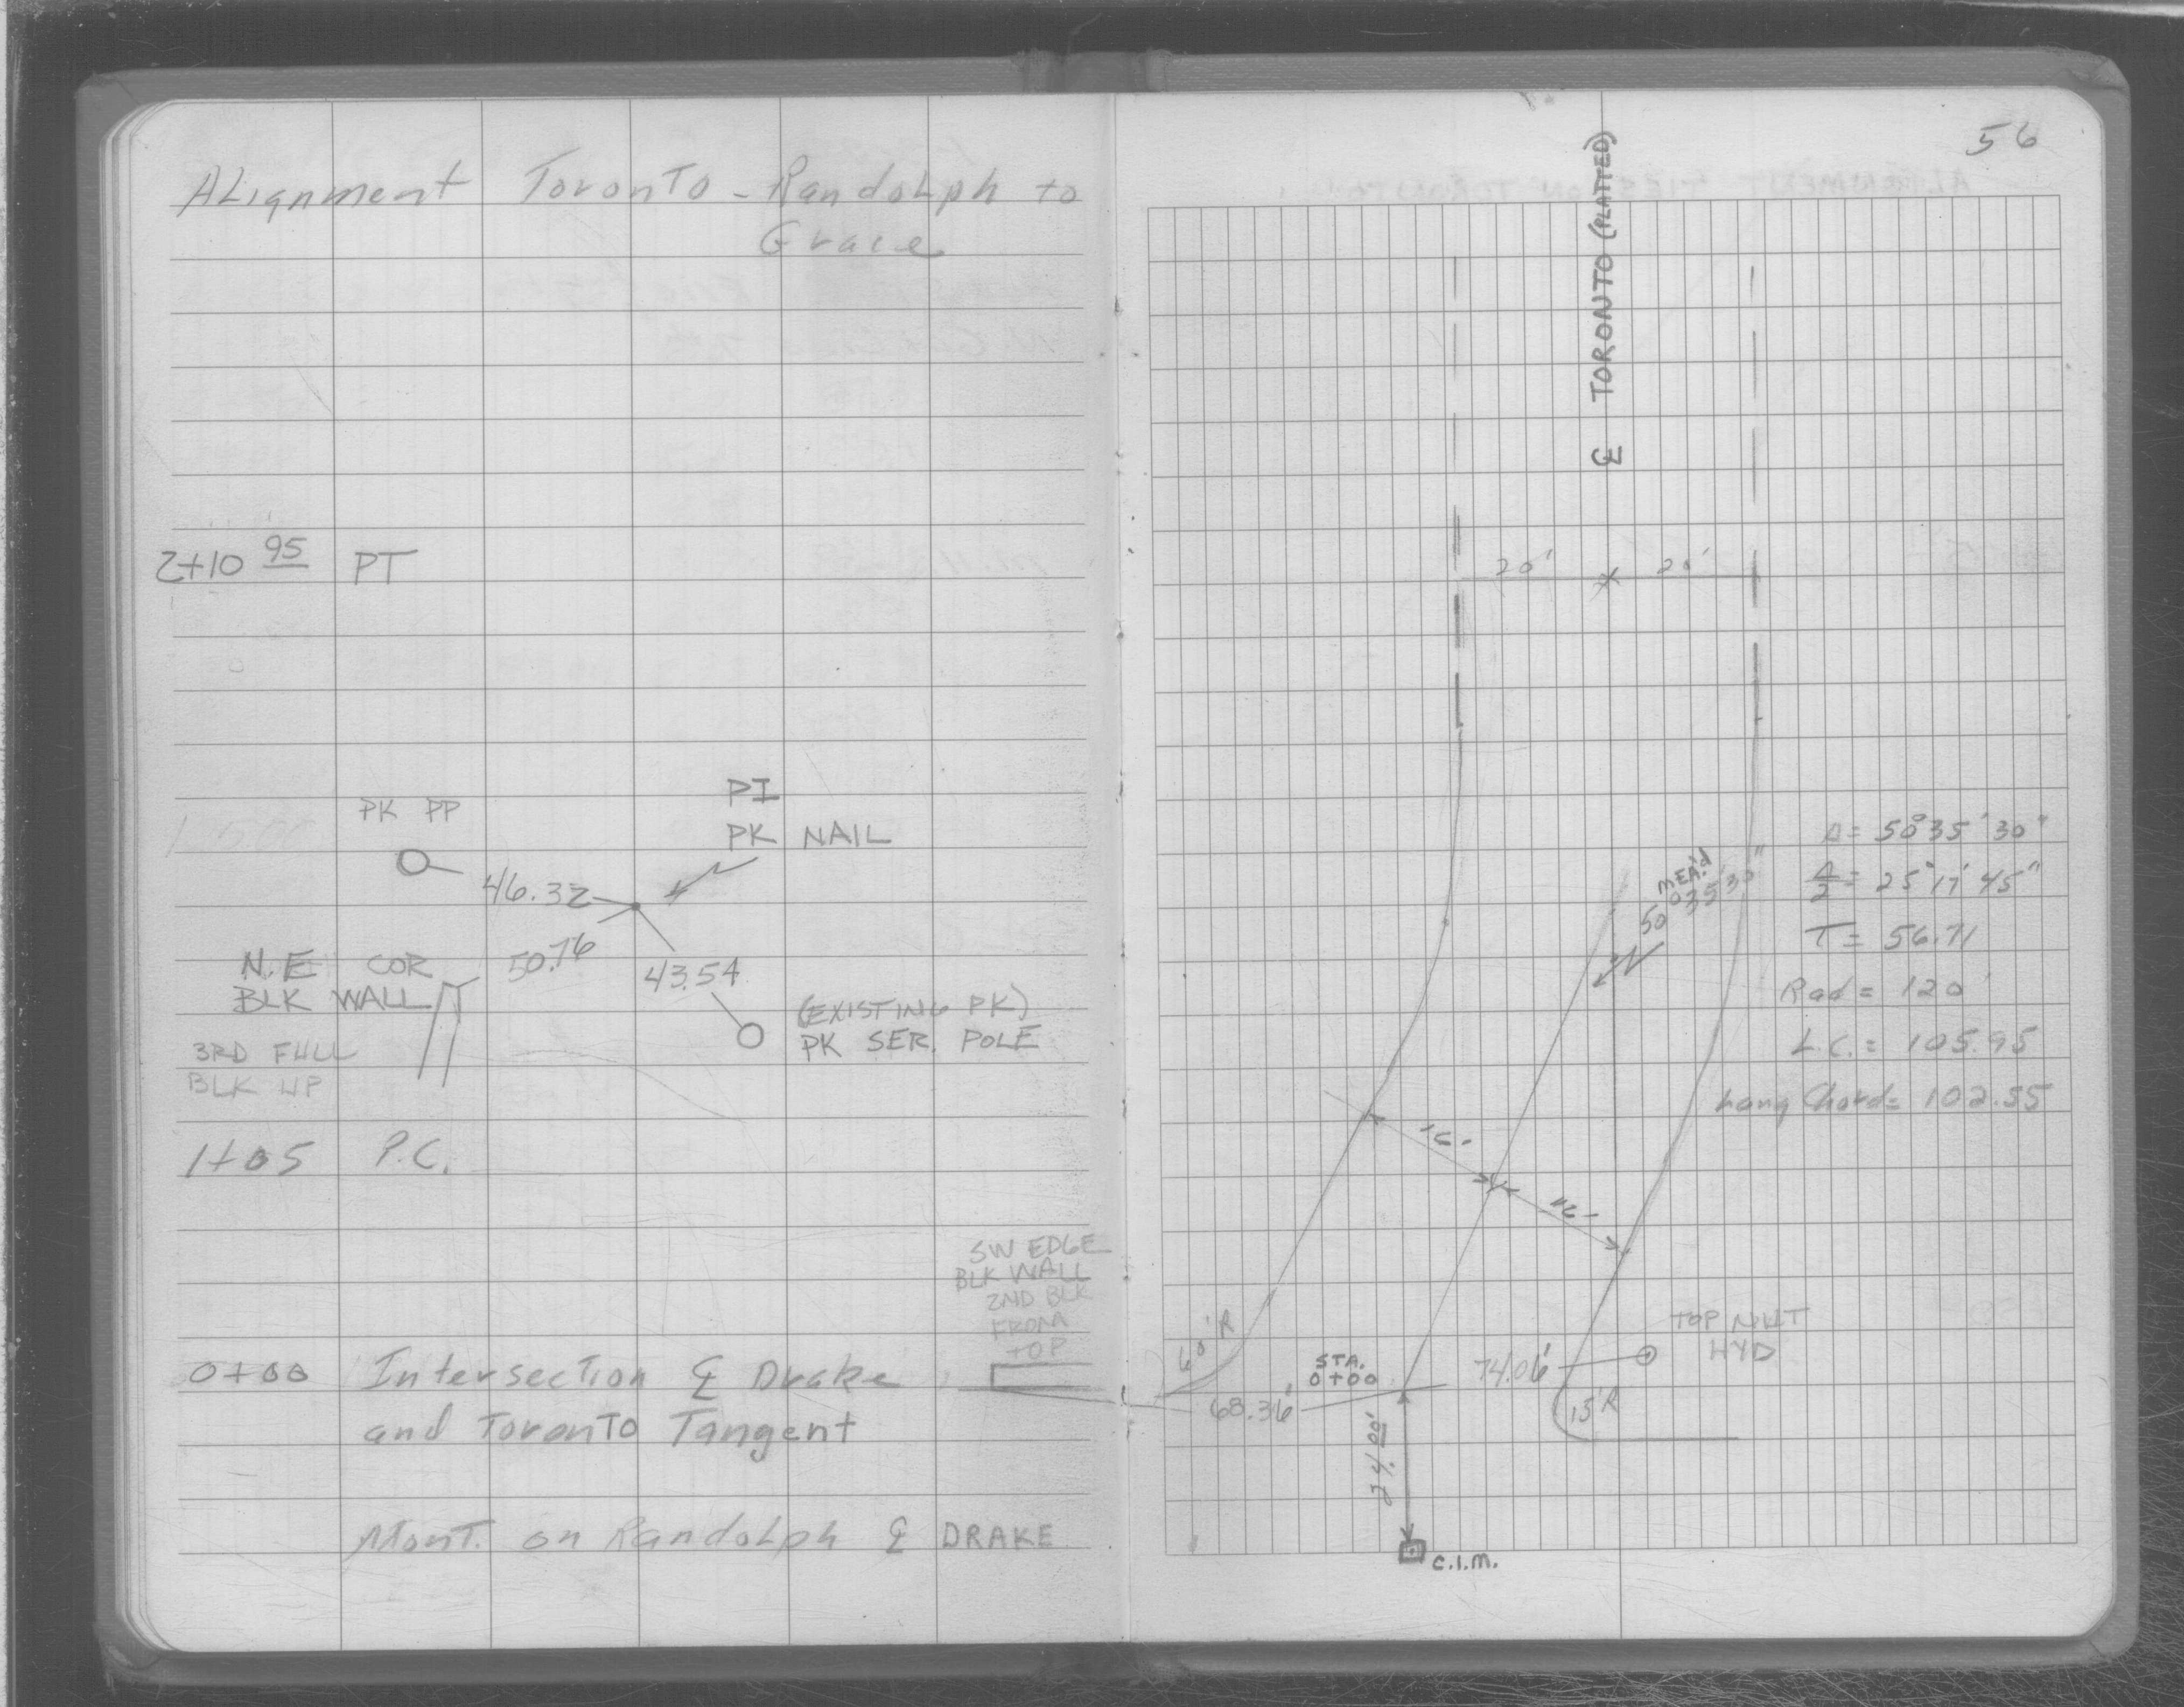 ALignment Toronto - Randolph to
Grace
2+10 95 PT
PI
PK PP
PK NAIL
46.32
50.76
43.54
N.E COR
BLK WALL
3RD FULL
BLK UP
(EXISTING PK)
PK SER. POLE
1+05 P.C.
SW EDGE
BLK WALL
2ND BLK
FROM
TOP
0+00 Intersection ℄ Drake
and Toronto Tangent
Mont. on Randolph ℄ DRAKE
56
℄ TORONTO (PLATTED)
20' 20'
MEA'd
50°35'30"
Δ = 50°35'30"
Δ/2 = 25°17'45"
T = 56.71
Rad = 120'
L.C. = 105.95
Long Chord = 102.55
60'R
STA.
0+00
68.36'
74.06'
TOP NUT
HYD
15'R
24.00'
C.I.M.